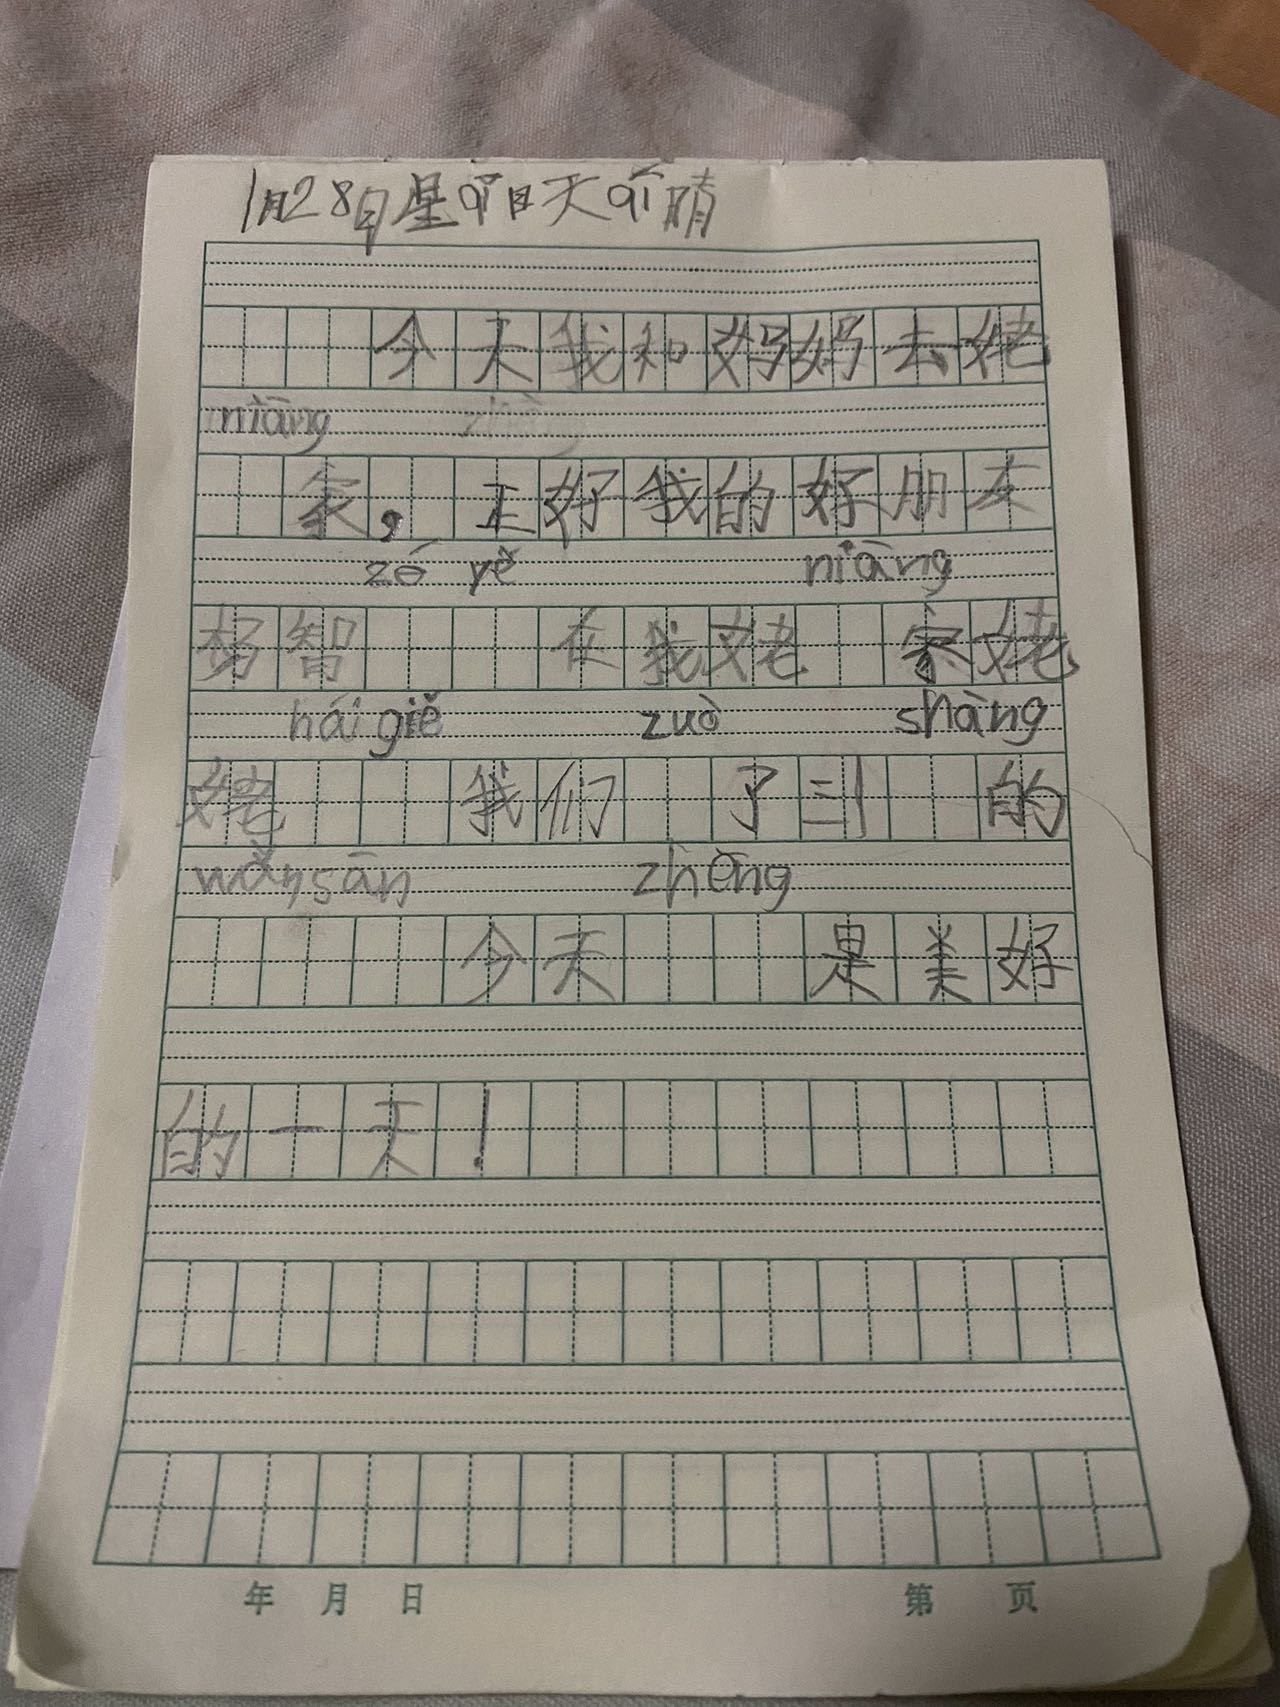 1月28日星qī日天qì晴
今天我和妈妈去姥
niāng zhèng
家，正好我的好朋友
zé yě niāng
杨智 在我姥 家姥
hái giě zuò shàng
姥 我们 了到 的
wǎn sān zhēng
今天 是美好
的一天！
年 月 日 第 页